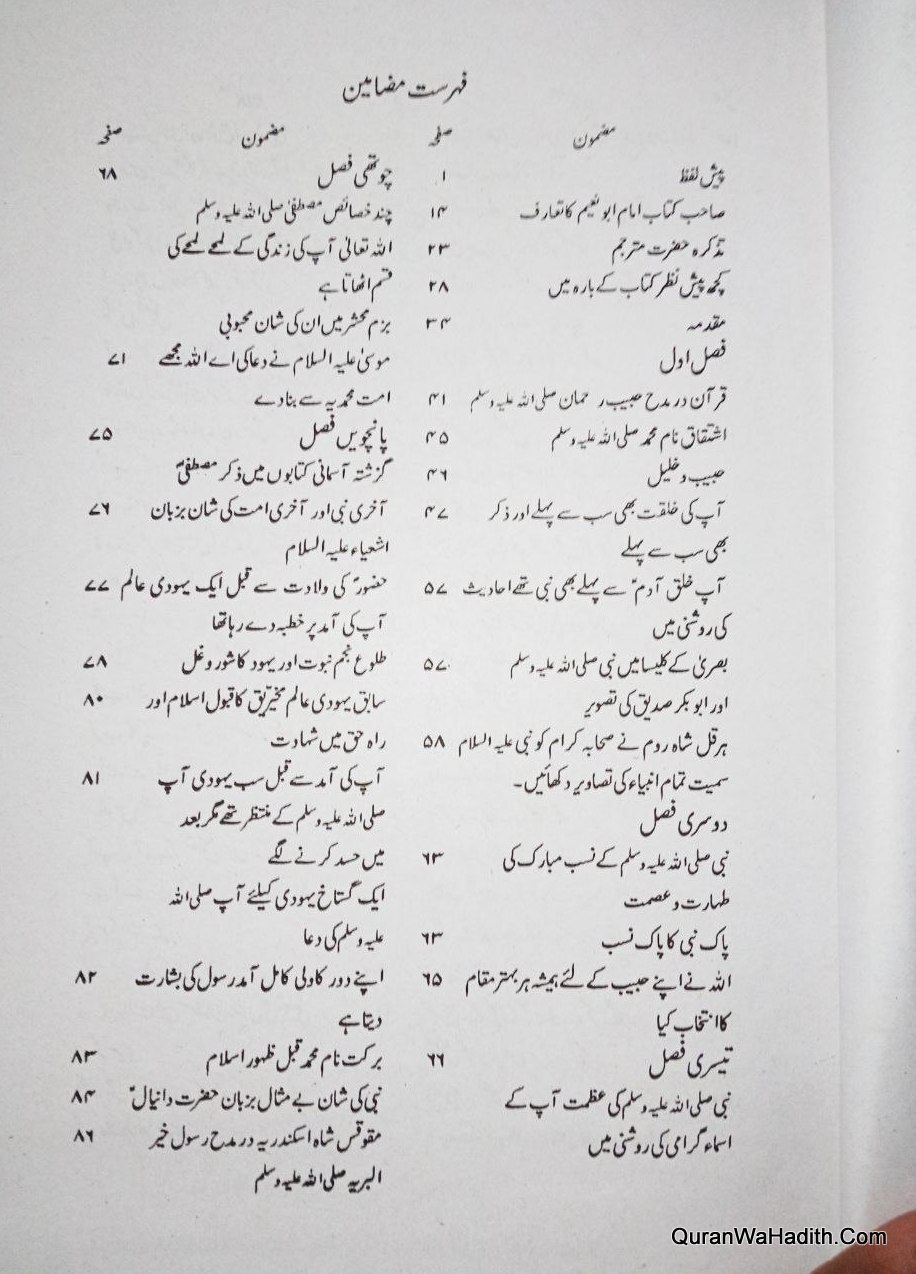 فہرست مضامین
مضمون صفحہ
پیش لفظ ۱
صاحب کتاب امام ابو نعیم کا تعارف ۱۴
تذکرہ حضرت مترجم ۲۳
کچھ پیش نظر کتاب کے بارہ میں ۲۸
مقدمہ ۳۴
فصل اول
قرآن در مدح حبیب رحمان صلی اللہ علیہ وسلم ۴۱
اشتقاق نام محمد صلی اللہ علیہ وسلم ۴۵
حبیب و خلیل ۴۶
آپ کی خلقت بھی سب سے پہلے اور ذکر ۴۷
بھی سب سے پہلے
آپ خلق آدمؑ سے پہلے بھی نبی تھے احادیث ۵۷
کی روشنی میں
بصریٰ کے کلیسا میں نبی صلی اللہ علیہ وسلم ۵۷
اور ابو بکر صدیق کی تصویر
ہرقل شاہ روم نے صحابہ کرام کو نبی علیہ السلام ۵۸
سمیت تمام انبیاء کی تصاویر دکھائیں۔
دوسری فصل
نبی صلی اللہ علیہ وسلم کے نسب مبارک کی ۶۳
طہارت و عصمت
پاک نبی کا پاک نسب ۶۳
اللہ نے اپنے حبیب کے لئے ہمیشہ ہر بہتر مقام ۶۵
کا انتخاب کیا
تیسری فصل ۶۶
نبی صلی اللہ علیہ وسلم کی عظمت آپ کے
اسماء گرامی کی روشنی میں
مضمون صفحہ
چوتھی فصل ۶۸
چند خصائص مصطفیٰ صلی اللہ علیہ وسلم
اللہ تعالیٰ آپ کی زندگی کے لمحے لمحے کی
قسم اٹھاتا ہے
بزم محشر میں ان کی شان محبوبی
موسیٰ علیہ السلام نے دعا کی اے اللہ مجھے ۷۱
امت محمدیہ سے بنا دے
پانچویں فصل ۷۵
گزشتہ آسمانی کتابوں میں ذکر مصطفیٰؐ
آخری نبی اور آخری امت کی شان بزبان ۷۶
اشعیاء علیہ السلام
حضورؐ کی ولادت سے قبل ایک یہودی عالم ۷۷
آپ کی آمد پر خطبہ دے رہا تھا
طلوع نجم نبوت اور یہود کا شور و غل ۷۸
سابق یہودی عالم مخیریق کا قبول اسلام اور ۸۰
راہ حق میں شہادت
آپ کی آمد سے قبل سب یہودی آپ ۸۱
صلی اللہ علیہ وسلم کے منتظر تھے مگر بعد
میں حسد کرنے لگے
ایک گستاخ یہودی کیلئے آپ صلی اللہ
علیہ وسلم کی دعا
اپنے دور کا ولی کامل آمد رسول کی بشارت ۸۲
دیتا ہے
برکت نام محمد قبل ظہور اسلام ۸۳
نبی کی شان بے مثال بزبان حضرت دانیالؑ ۸۴
مقوقس شاہ اسکندریہ در مدح رسول خیر ۸۶
البریہ صلی اللہ علیہ وسلم
QuranWaHadith.Com